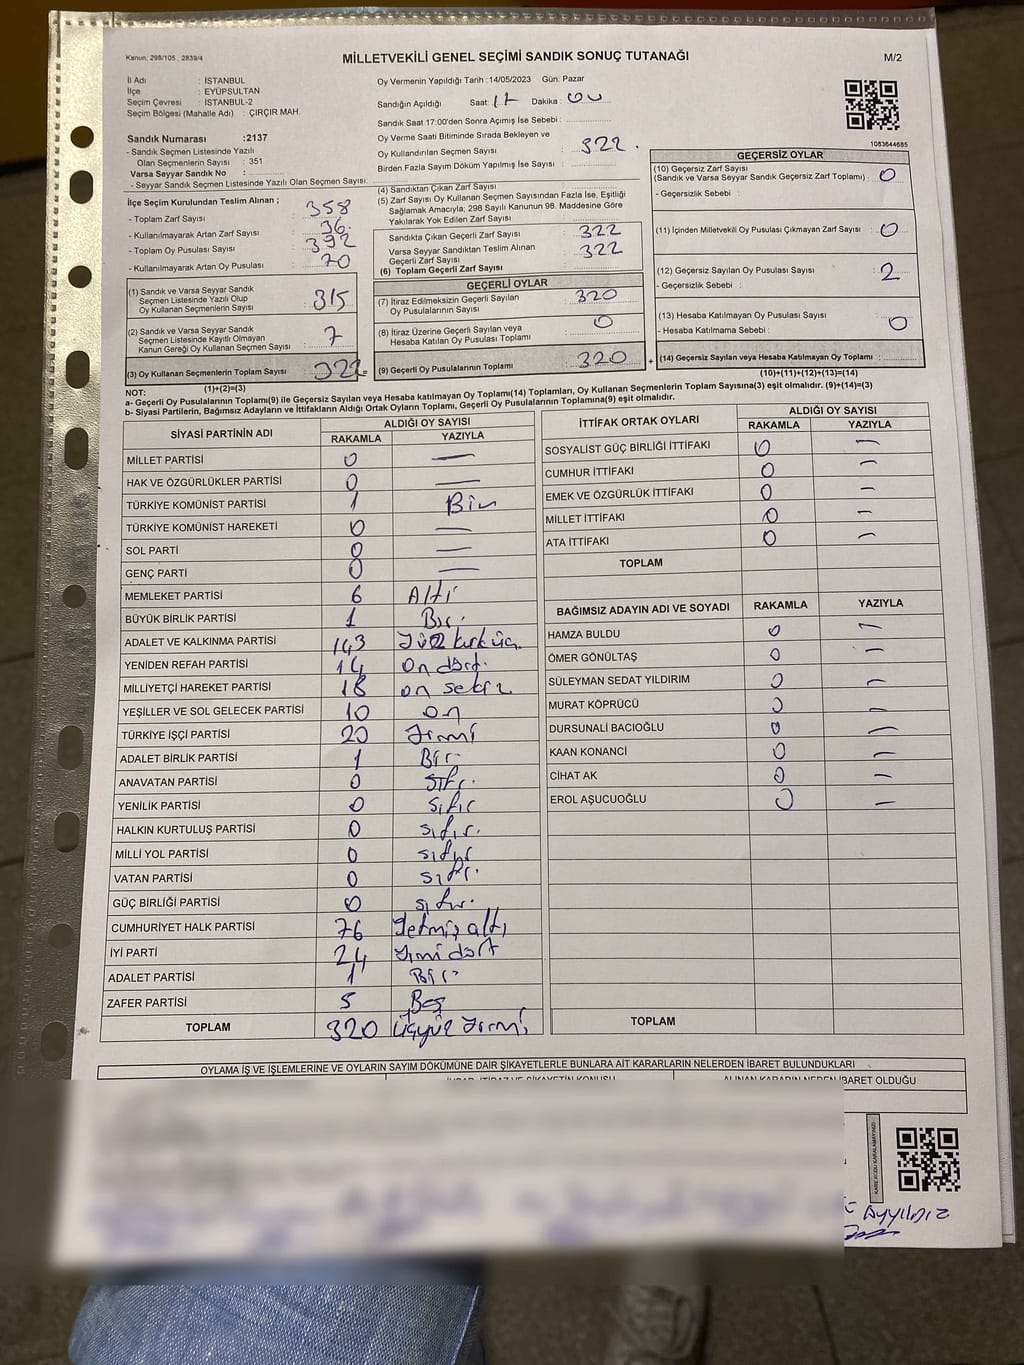 Kanun, 298/105 , 2839/4
MİLLETVEKİLİ GENEL SEÇİMİ SANDIK SONUÇ TUTANAĞI
M/2
İl Adı : İSTANBUL
İlçe : EYÜPSULTAN
Seçim Çevresi : İSTANBUL-2
Seçim Bölgesi (Mahalle Adı) : ÇIRÇIR MAH.
Sandık Numarası :2137
- Sandık Seçmen Listesinde Yazılı
Olan Seçmenlerin Sayısı : 351
Varsa Seyyar Sandık No :
- Seyyar Sandık Seçmen Listesinde Yazılı Olan Seçmen Sayısı:
Oy Vermenin Yapıldığı Tarih :14/05/2023 Gün: Pazar
Sandığın Açıldığı Saat: 17 Dakika : 00
Sandık Saat 17:00'den Sonra Açımış İse Sebebi :
Oy Verme Saati Bitiminde Sırada Bekleyen ve
Oy Kullandırılan Seçmen Sayısı : 322.
Birden Fazla Sayım Döküm Yapılmış İse Sayısı :
1083644685
İlçe Seçim Kurulundan Teslim Alınan ;
- Toplam Zarf Sayısı : 358
- Kullanılmayarak Artan Zarf Sayısı : 36.
- Toplam Oy Pusulası Sayısı : 392
- Kullanılmayarak Artan Oy Pusulası : 70
(1) Sandık ve Varsa Seyyar Sandık
Seçmen Listesinde Yazılı Olup
Oy Kullanan Seçmenlerin Sayısı : 315
(2) Sandık ve Varsa Seyyar Sandık
Seçmen Listesinde Kayıtlı Olmayan
Kanun Gereği Oy Kullanan Seçmen Sayısı : 7
(3) Oy Kullanan Seçmenlerin Toplam Sayısı : 322 =
(1)+(2)=(3)
(4) Sandıktan Çıkan Zarf Sayısı :
(5) Zarf Sayısı Oy Kullanan Seçmen Sayısından Fazla İse, Eşitliği
Sağlamak Amacıyla; 298 Sayılı Kanunun 98. Maddesine Göre
Yakılarak Yok Edilen Zarf Sayısı :
Sandıkta Çıkan Geçerli Zarf Sayısı : 322
Varsa Seyyar Sandıktan Teslim Alınan
Geçerli Zarf Sayısı : 322
(6) Toplam Geçerli Zarf Sayısı :
GEÇERLİ OYLAR
(7) İtiraz Edilmeksizin Geçerli Sayılan
Oy Pusulalarının Sayısı : 320
(8) İtiraz Üzerine Geçerli Sayılan veya
Hesaba Katılan Oy Pusulası Toplamı : 0
(9) Geçerli Oy Pusulalarının Toplamı : 320 +
GEÇERSİZ OYLAR
(10) Geçersiz Zarf Sayısı
(Sandık ve Varsa Seyyar Sandık Geçersiz Zarf Toplamı) : 0
- Geçersizlik Sebebi :
(11) İçinden Milletvekili Oy Pusulası Çıkmayan Zarf Sayısı : 0
(12) Geçersiz Sayılan Oy Pusulası Sayısı : 2
- Geçersizlik Sebebi :
(13) Hesaba Katılmayan Oy Pusulası Sayısı :
- Hesaba Katılmama Sebebi : 0
(14) Geçersiz Sayılan veya Hesaba Katılmayan Oy Toplamı :
(10)+(11)+(12)+(13)=(14)
NOT:
a- Geçerli Oy Pusulalarının Toplamı(9) ile Geçersiz Sayılan veya Hesaba katılmayan Oy Toplamı(14) Toplamları, Oy Kullanan Seçmenlerin Toplam Sayısına(3) eşit olmalıdır. (9)+(14)=(3)
b- Siyasi Partilerin, Bağımsız Adayların ve İttifakların Aldığı Ortak Oyların Toplamı, Geçerli Oy Pusulalarının Toplamına(9) eşit olmalıdır.
SİYASİ PARTİNİN ADI ALDIĞI OY SAYISI
RAKAMLA YAZIYLA
MİLLET PARTİSİ 0 —
HAK VE ÖZGÜRLÜKLER PARTİSİ 0 —
TÜRKİYE KOMÜNİST PARTİSİ 1 Bir
TÜRKİYE KOMÜNİST HAREKETİ 0 —
SOL PARTİ 0 —
GENÇ PARTİ 0 —
MEMLEKET PARTİSİ 6 Altı
BÜYÜK BİRLİK PARTİSİ 1 Bir
ADALET VE KALKINMA PARTİSİ 143 Yüz kırk üç
YENİDEN REFAH PARTİSİ 14 on dört.
MİLLİYETÇİ HAREKET PARTİSİ 18 on sekiz
YEŞİLLER VE SOL GELECEK PARTİSİ 10 on
TÜRKİYE İŞÇİ PARTİSİ 20 Yirmi
ADALET BİRLİK PARTİSİ 1 Bir
ANAVATAN PARTİSİ 0 sıfır.
YENİLİK PARTİSİ 0 sıfır
HALKIN KURTULUŞ PARTİSİ 0 sıfır.
MİLLİ YOL PARTİSİ 0 sıfır
VATAN PARTİSİ 0 sıfır.
GÜÇ BİRLİĞİ PARTİSİ 0 sıfır.
CUMHURİYET HALK PARTİSİ 76 Yetmiş altı
İYİ PARTİ 24 Yirmi dört
ADALET PARTİSİ 1 Bir
ZAFER PARTİSİ 5 Beş
TOPLAM 320 Üçyüz Yirmi
İTTİFAK ORTAK OYLARI ALDIĞI OY SAYISI
RAKAMLA YAZIYLA
SOSYALİST GÜÇ BİRLİĞİ İTTİFAKI 0 —
CUMHUR İTTİFAKI 0 —
EMEK VE ÖZGÜRLÜK İTTİFAKI 0 —
MİLLET İTTİFAKI 0 —
ATA İTTİFAKI 0 —
TOPLAM
BAĞIMSIZ ADAYIN ADI VE SOYADI RAKAMLA YAZIYLA
HAMZA BULDU 0 —
ÖMER GÖNÜLTAŞ 0 —
SÜLEYMAN SEDAT YILDIRIM 0 —
MURAT KÖPRÜCÜ 0 —
DURSUNALİ BACIOĞLU 0 —
KAAN KONANCİ 0 —
CİHAT AK 0 —
EROL AŞUCUOĞLU 0 —
TOPLAM
OYLAMA İŞ VE İŞLEMLERİNE VE OYLARIN SAYIM DÖKÜMÜNE DAİR ŞİKAYETLERLE BUNLARA AİT KARARLARIN NELERDEN İBARET BULUNDUKLARI
İHBAR, İTİRAZ VE ŞİKAYETİN KONUSU ALINAN KARARIN NEDEN İBARET OLDUĞU
KARE KODU KARALAMAYINIZ
AYYILDIZ